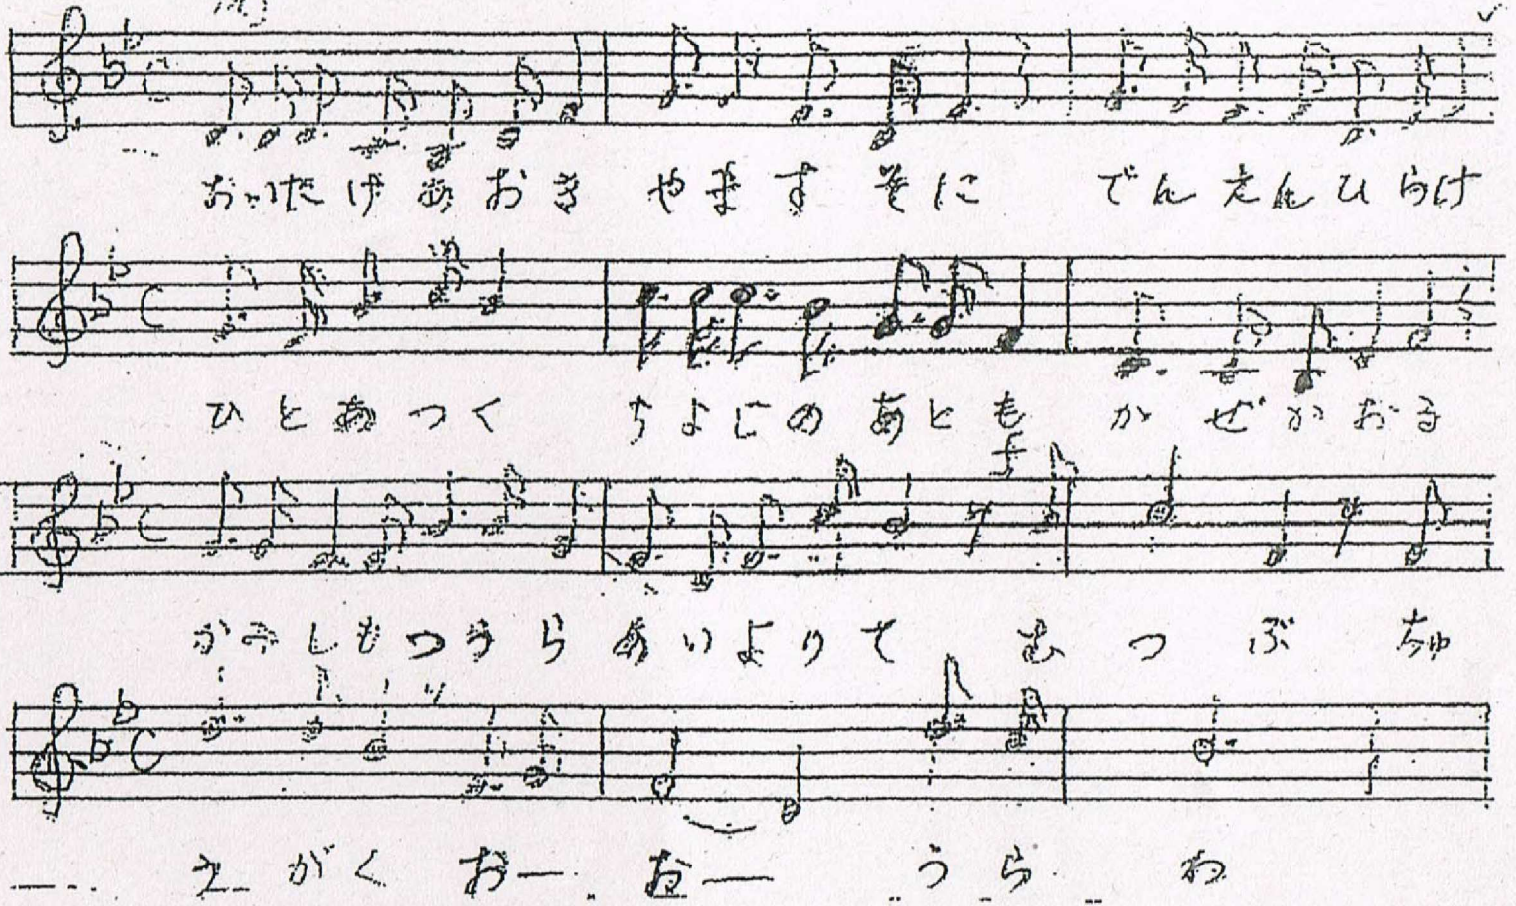 mf
おいたけあおき やますそに でんえんひらけ
ひとあつく ちよじのあとも かぜかおる
f
かみしもつうら あいよりて むつぶちゅ
えがくおー おー うらわ